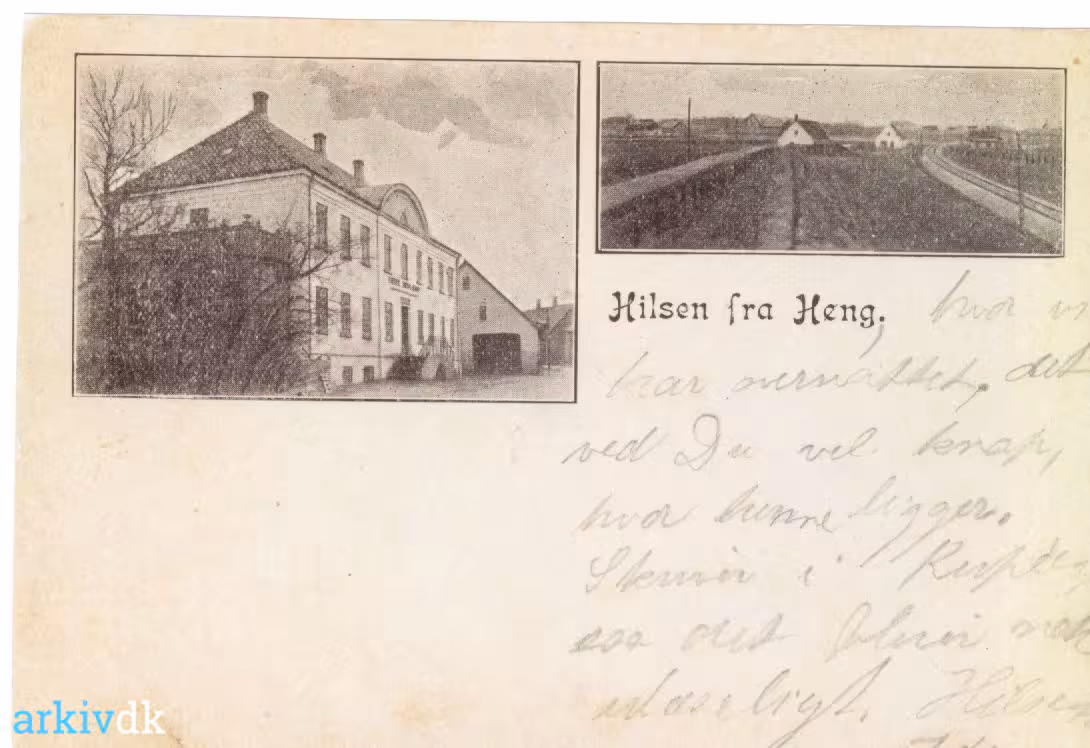 Hilsen fra Høng.
hvor vi
har overnattet, det
ved Du vel knap,
hvor henne ligger.
i
saa det bliver
ulæseligt. Hilsen
arkivdk